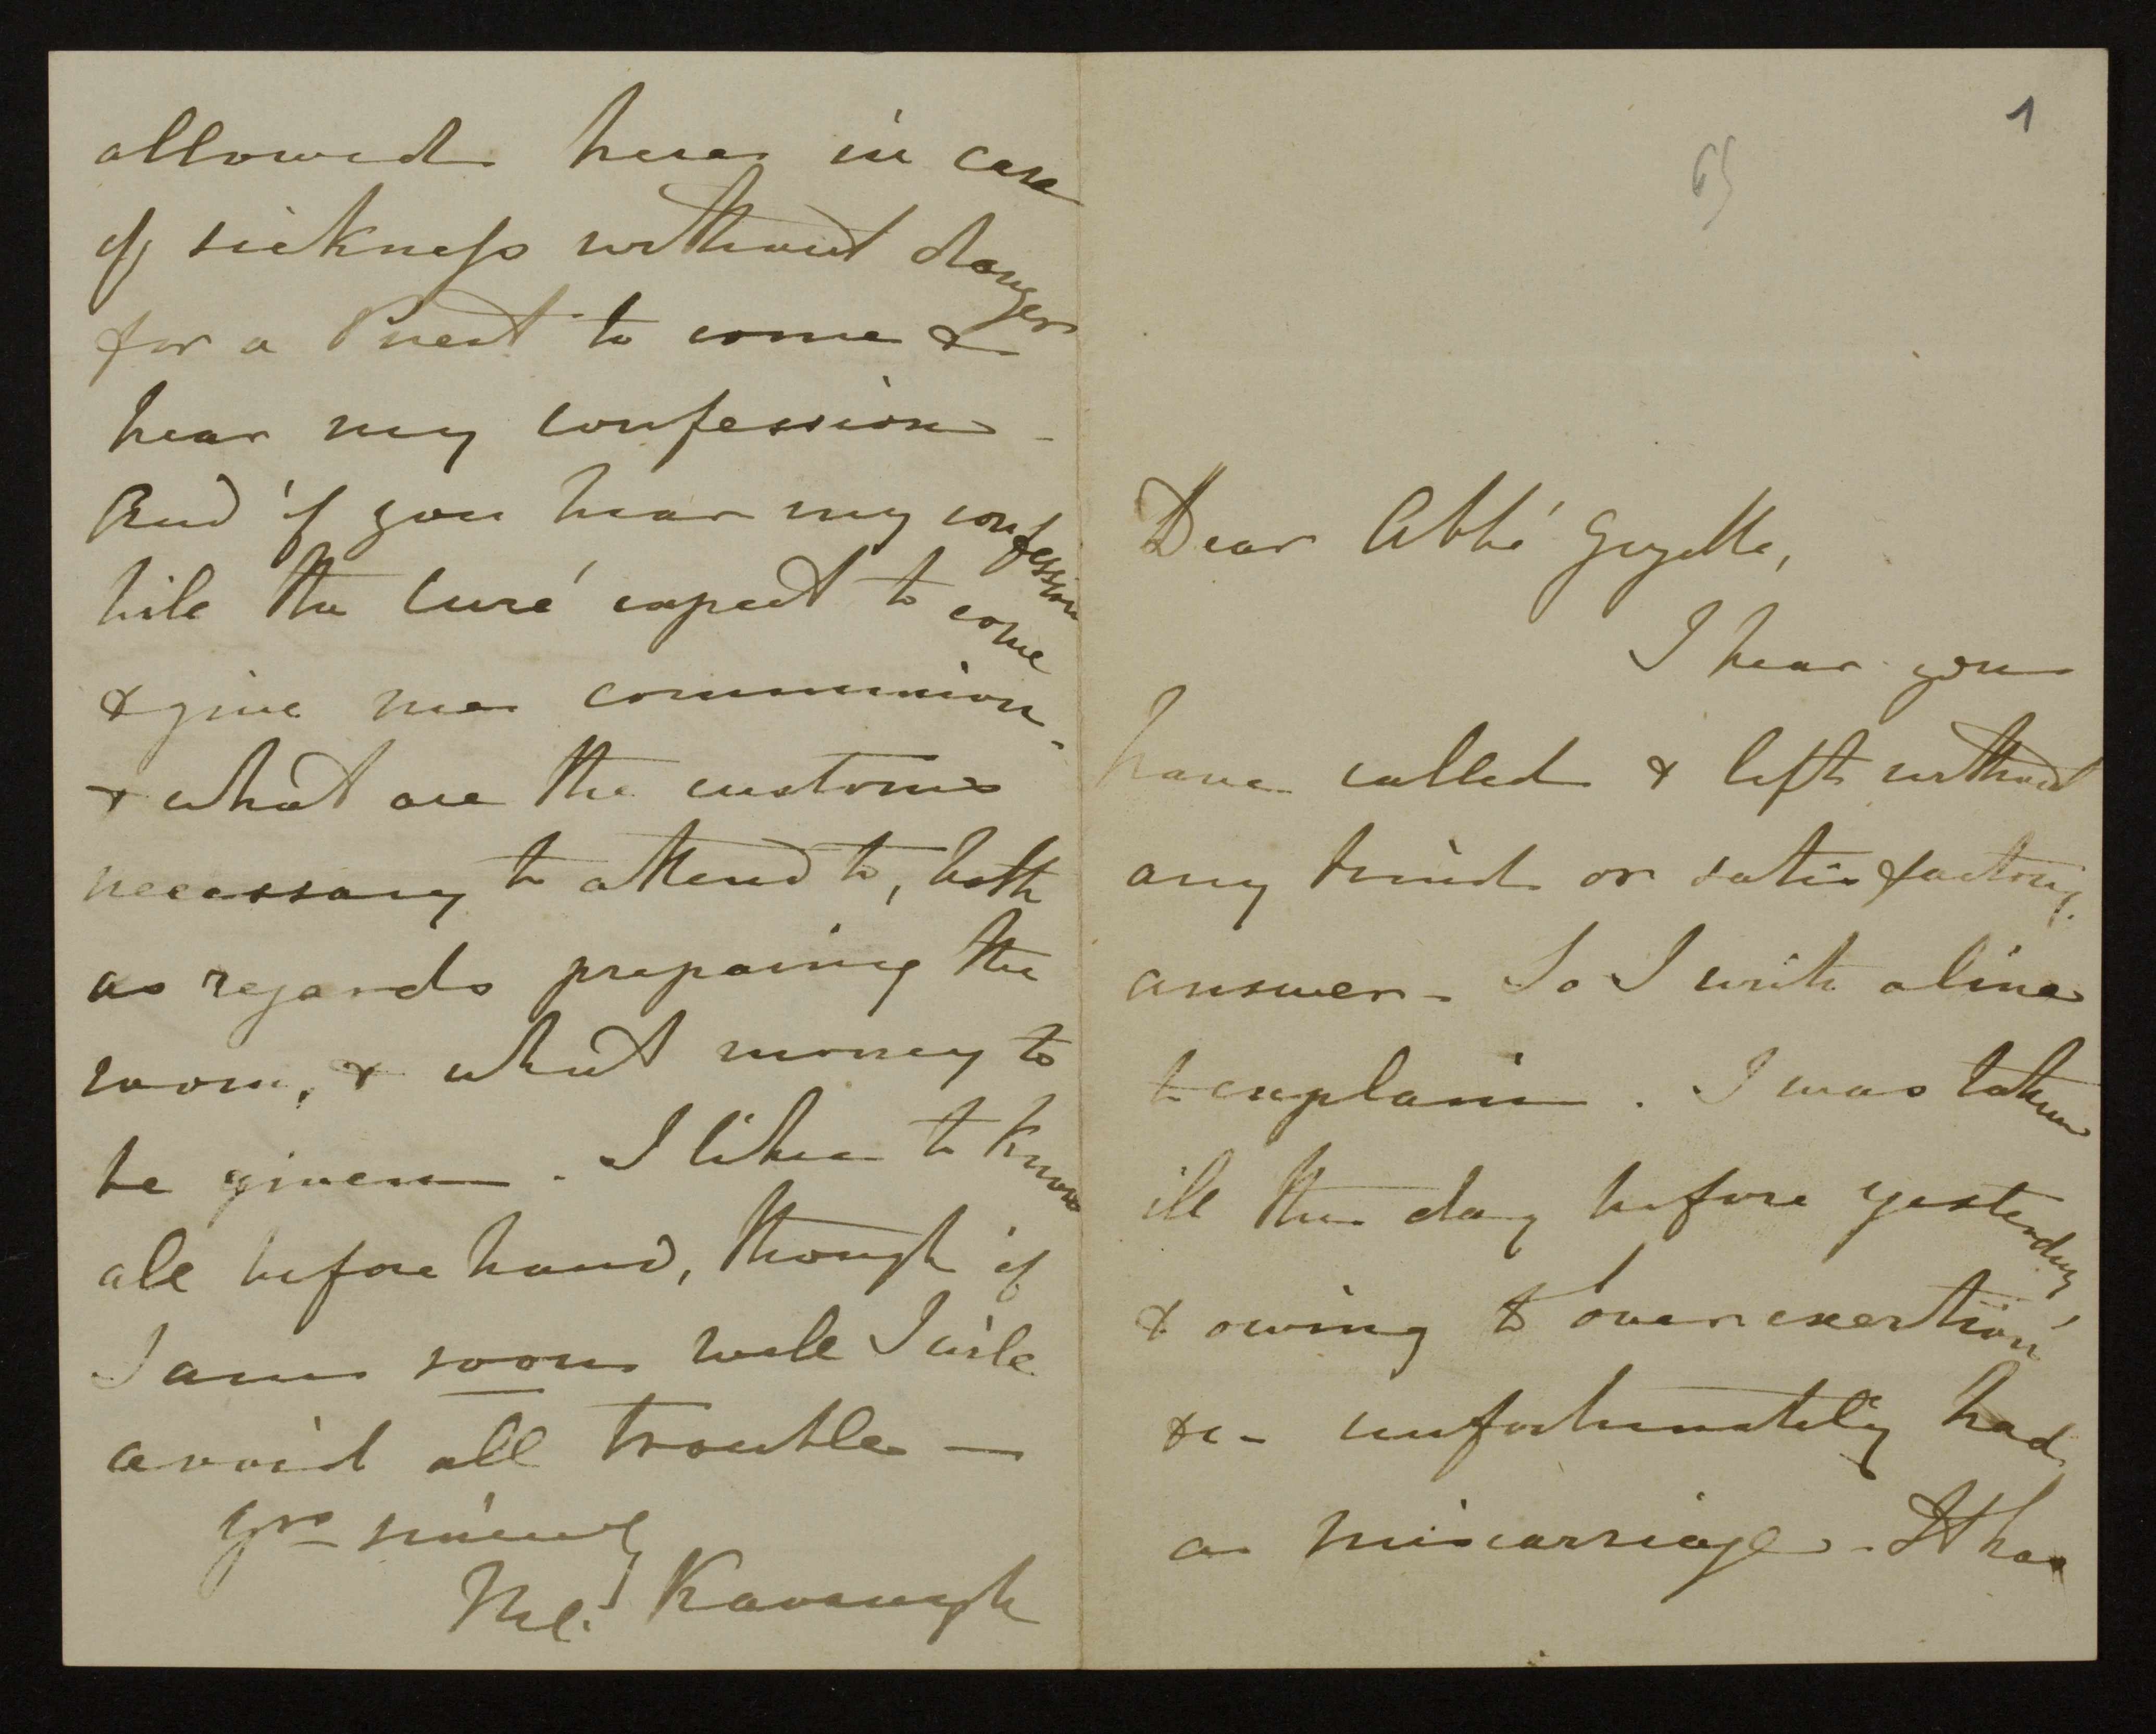 1
65
Dear Abbé Guyette,
I hear you
have called & left without
any kind or satisfactory
answer - So I write a line
to explain. I was taken
ill the day before yesterday,
& owing to over exertion
&c - unfortunately had
a miscarriage. It has
allowed here in case
of sickness without danger
for a Priest to come &
hear my confession -
And if you hear my confession
will the Curé expect to come
& give me communion -
& what are the customs
necessary to attend to, both
as regards preparing the
room, & what money to
be given. I like to know
all before hand, though if
I am soon well I will
avoid all trouble -
Yrs sincerely
M. Kavanagh